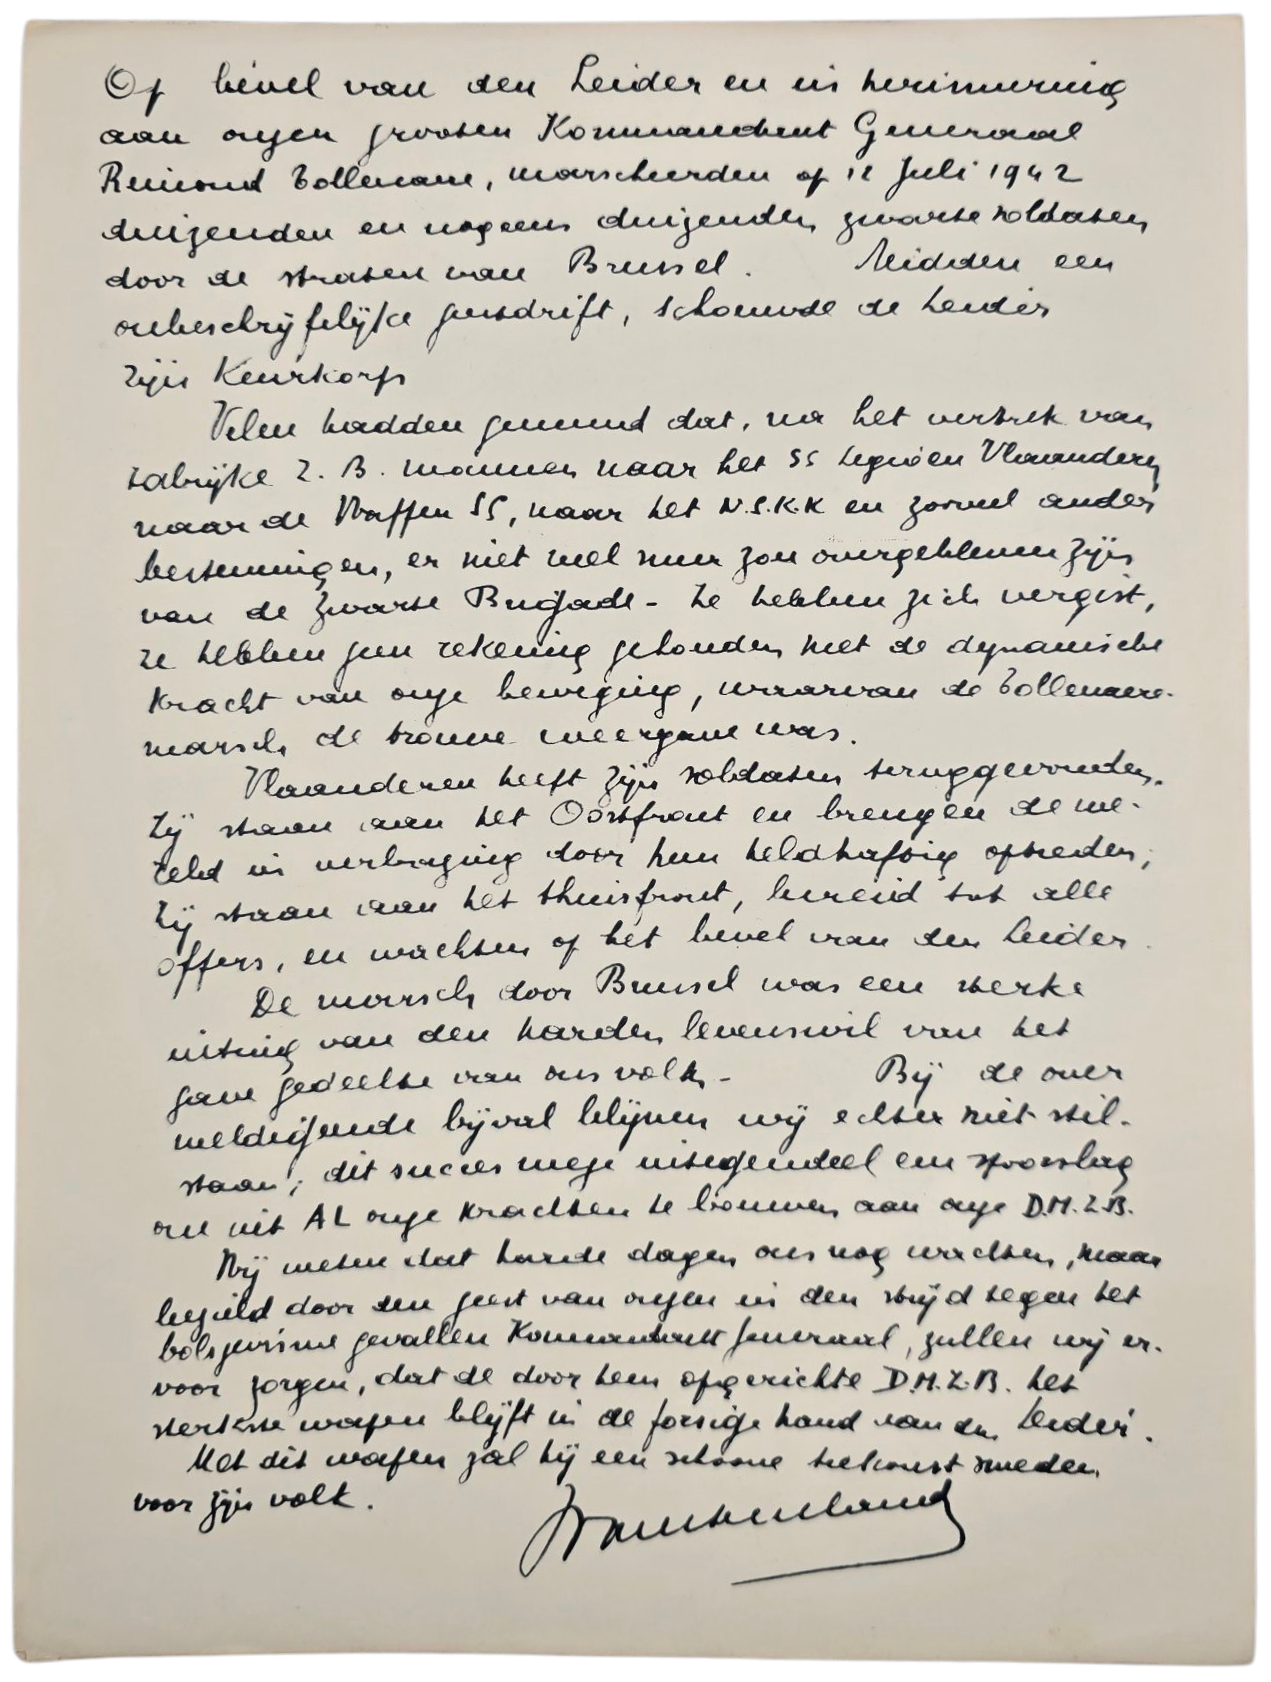 Op bevel van den Leider en in herinnering
aan onzen grooten Kommandant Generaal
Reimond Tollenaere, marscheerden op 12 Juli 1942
duizenden en nogeens duizenden zwarte soldaten
door de straten van Brussel. Midden een
onbeschrijfelijke geestdrift, schouwde de Leider
zijn Keurkorps
Velen hadden gemeend dat, na het vertrek van
talrijke Z. B. mannen naar het SS Legioen Vlaanderen
naar de Waffen SS, naar het N.S.K.K en zooveel ander
bestemmingen, er niet veel meer zou overgebleven zijn
van de Zwarte Brigade - Ze hebben zich vergist,
ze hebben geen rekening gehouden met de dynamische
kracht van onze beweging, waarvan de Tollenaere-
marsch de trouwe weergave was.
Vlaanderen heeft zijn soldaten teruggevonden.
Zij staan aan het Oostfront en brengen de we-
reld in verbazing door hun heldhaftig optreden;
Zij staan aan het thuisfront, bereid tot alle
offers, en wachten op het bevel van den Leider.
De marsch door Brussel was een sterke
uiting van den harden levenswil van het
gave gedeelte van ons volk - Bij de over
weldigende bijval blijven wij echter niet stil-
staan; dit succes weze integendeel een spoorslag
om uit AL onze krachten te bouwen aan onze D.M.Z.B.
Wij weten dat harde dagen ons nog wachten, maar
bezield door den geest van onzen in den strijd tegen het
bolsjevisme gevallen Kommandant Generaal, zullen wij er-
voor zorgen, dat de door hem opgerichte D.M.Z.B. het
sterkste wapen blijft in de forsige hand van den Leider.
Met dit wapen zal hij een schoone toekomst smeden
voor zijn volk.